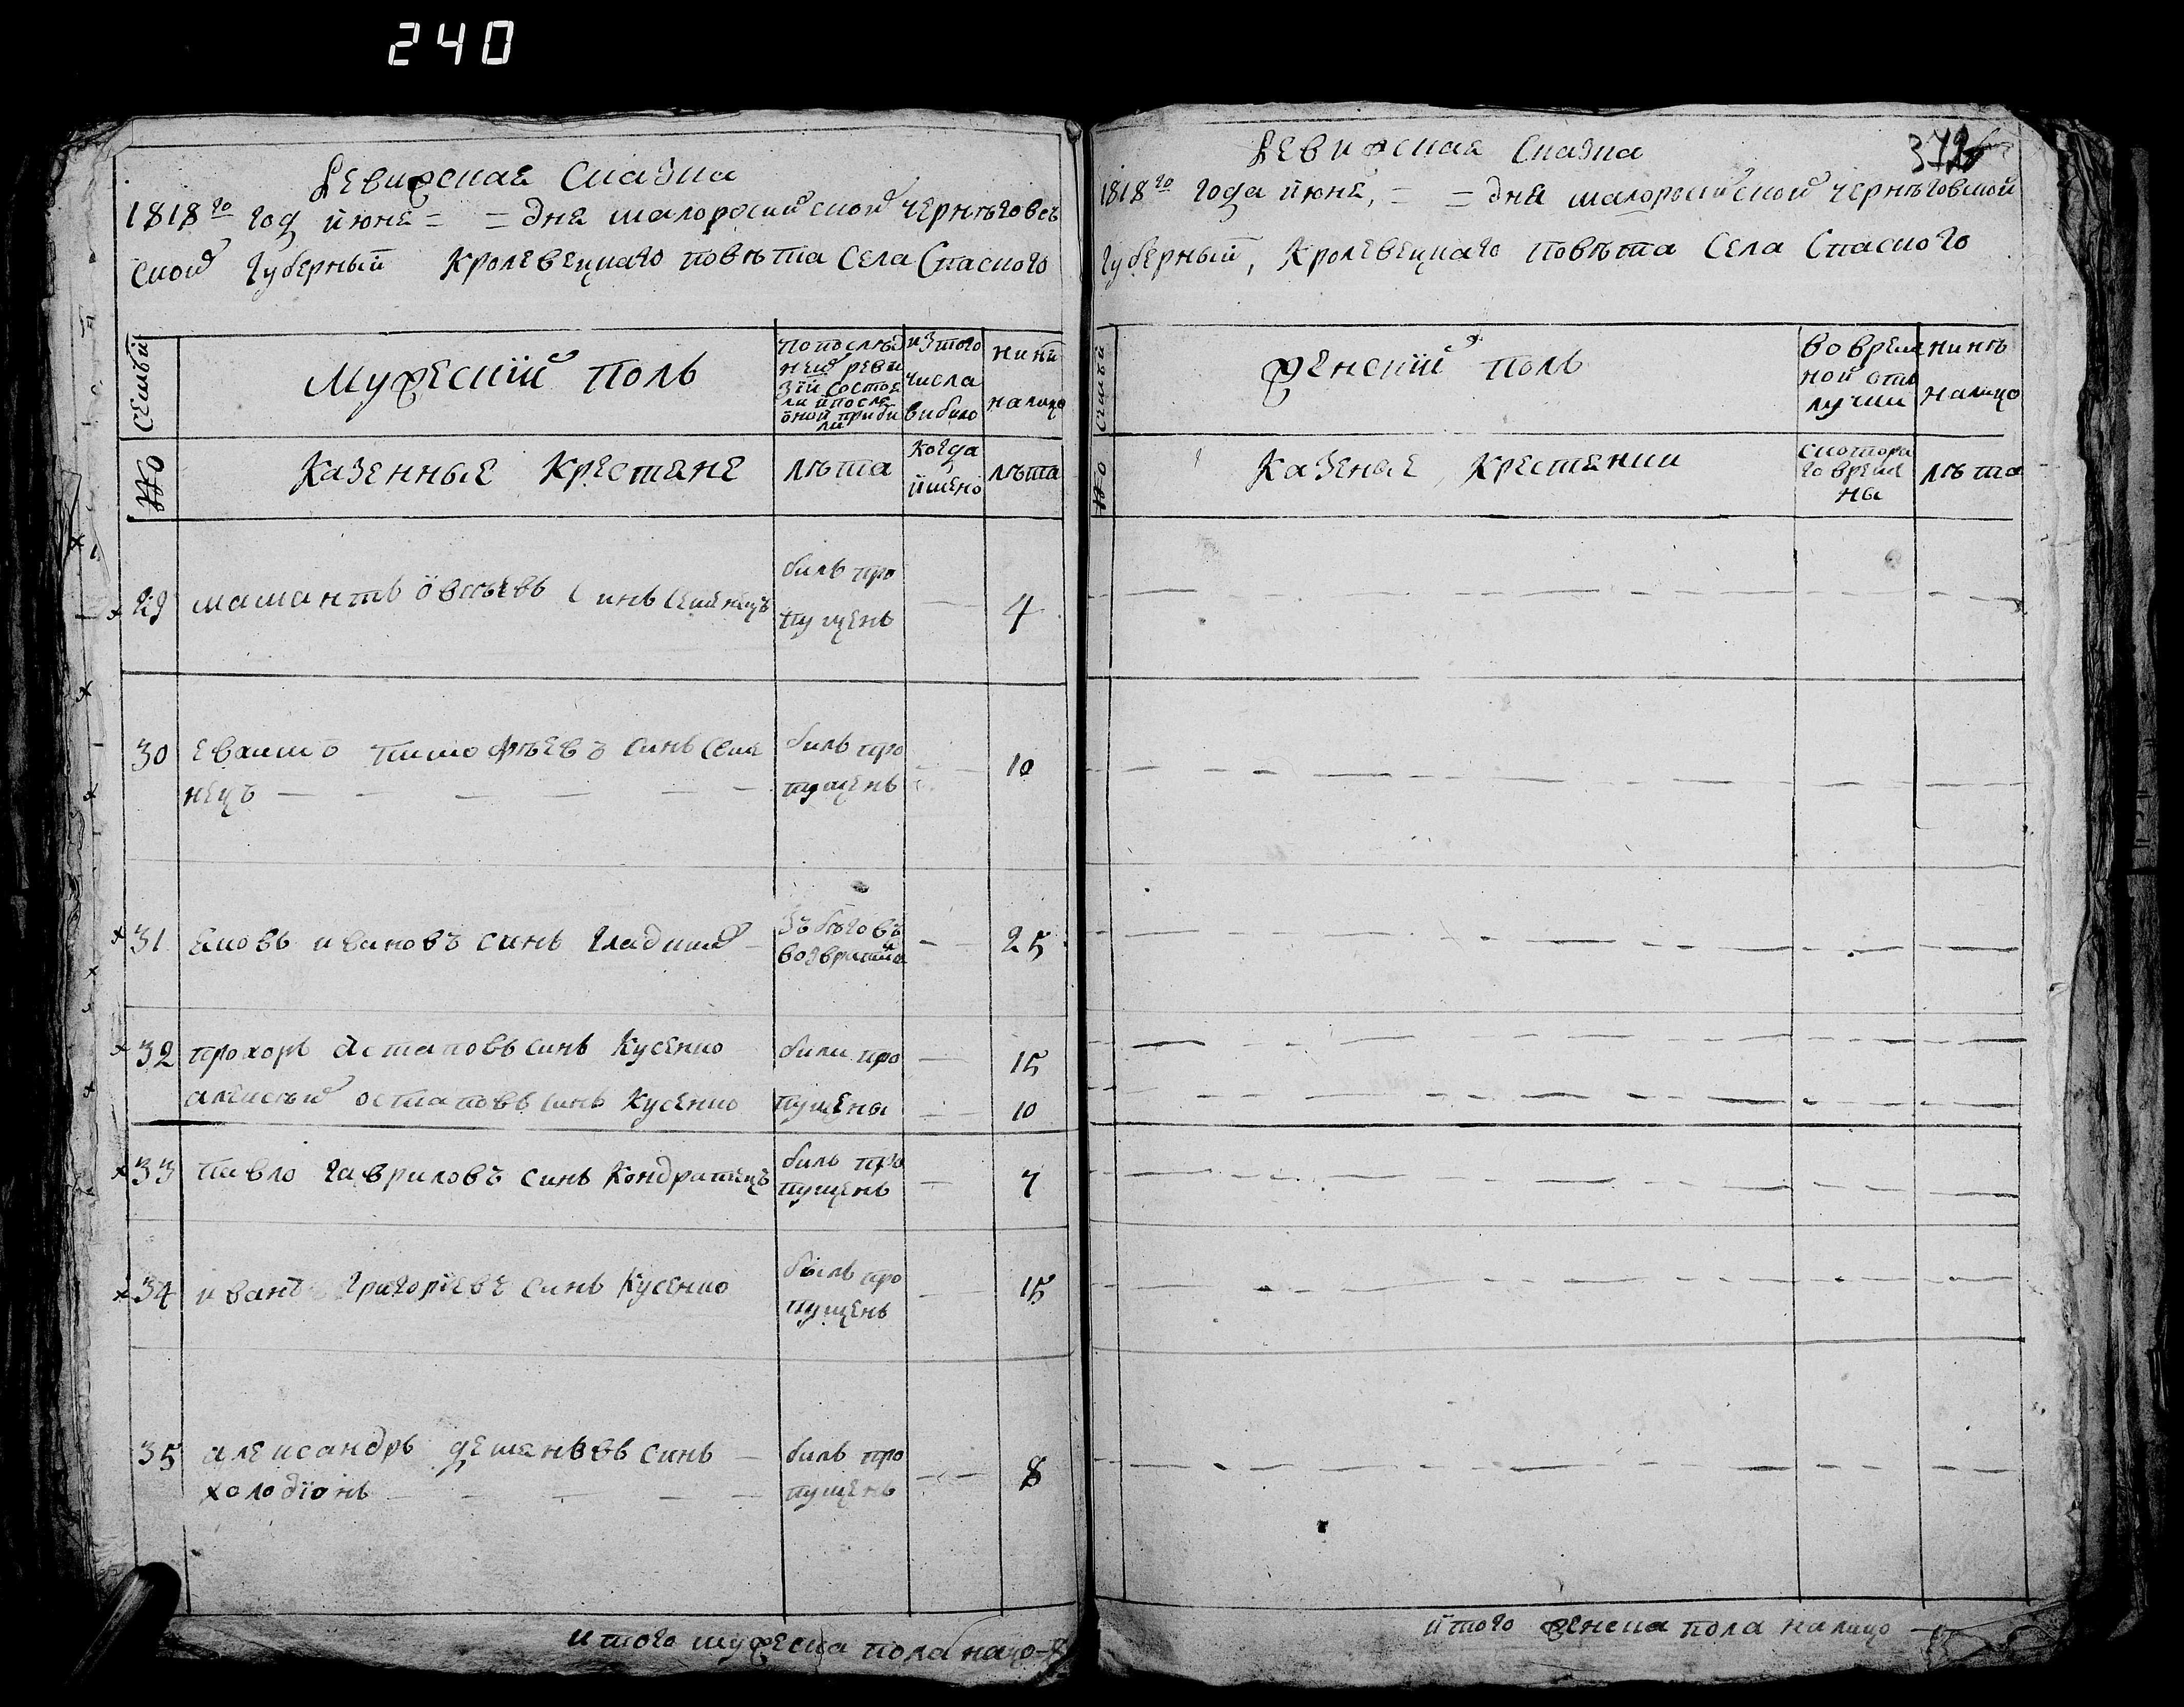 240
Ревизская Сказка
1818го год июня = = дня малоросийской чернѣговс
ской Губерный Кролевецкаго повѣта Села Спаского
семьи
Мужеский поль
по послѣд
ней реви
зии состоя
ли и после
оной приби
ли
изтого
числа
вибило
нинѣ
налицо
No
Казенные Крестяне
лѣта
когда
имено
лѣта
29 мамантъ овсѣевъ синь
биль про
пущень
4
30
тимофѣевъ синь Семе
нецъ
биль про
пущень
10
31 Яковь ивановъ синь Гладкий
зъ бѣговъ
25
32 прохорь Астаповь синь Кусенко
били про
15
алексѣй остаповь синь Кусенко
пущены
10
33 павло гавриловъ синь Кондратецъ
биль про
пущень
7
34 иванъ григориевъ синь Кусенко
быль про
пущень
15
35 александрь деменьевь синь
холодионь
биль про
пущень
8
итого мужеска пола
372
Ревизская Сказка
1818го года июня, = = дня малоросийской чернѣговской
Губерный, Кролевецкаго повѣта Села Спаского
семьи
женский поль
во времен
ной отъ
лучки
нинѣ
налицо
No
Казеные Крестянки
скотора
го време
ны
лѣта
итого женска пола налицо